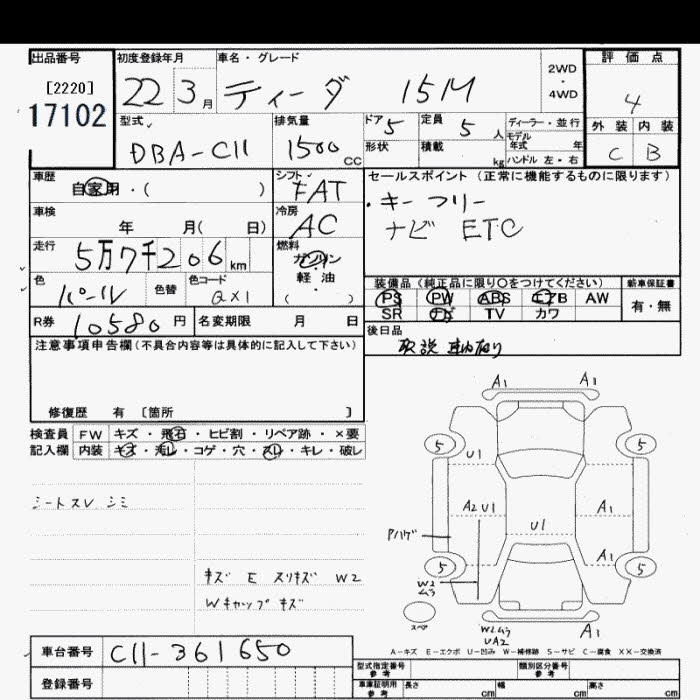 出品番号 初度登録年月 車名・グレード 2WD・4WD 評価点
[2220] 22 3月 ティーダ 15M 4
17102
型式 排気量 ドア 5 定員 5人 ディーラー・並行 外装 内装
DBA-C11 1500cc 形状 積載 kg モデル年式 年 C B
ハンドル 左・右
車歴 自家用・( ) シフト FAT セールスポイント(正常に機能するものに限ります)
車検 年 月( 日) 冷房 AC ・キーフリー
ナビ ETC
走行 5万7千206km 燃料 ガソリン
軽油
( )
色 パール 色替 色コード QX1
装備品(純正品に限り○をつけてください) 新車保証書
PS PW ABS エアB AW 有・無
SR ナビ TV カワ
R券 10580円 名変期限 月 日
後日品
取説
注意事項申告欄(不具合内容等は具体的に記入して下さい)
修復歴 有 〔箇所 〕
検査員 FW キズ・飛石・ヒビ割・リペア跡・×要
記入欄 内装 キズ・汚レ・コゲ・穴・スレ・キレ・破レ
シートスレ シミ
キズ E スリキズ W2
Wキャップキズ
A1 A1
5 5
U1
A2 U1 A1
Pハゲ U1
A1
5 5
W2ムラ
スペア
W2ムラ
UA2
A1
A−キズ E−エクボ U−凹み W−補修跡 S−サビ C−腐食 XX−交換済
車台番号 C11-361650
登録番号
型式指定番号 参考 類別区分番号 参考
車庫証明用 参考 長さ cm 幅 cm 高さ cm